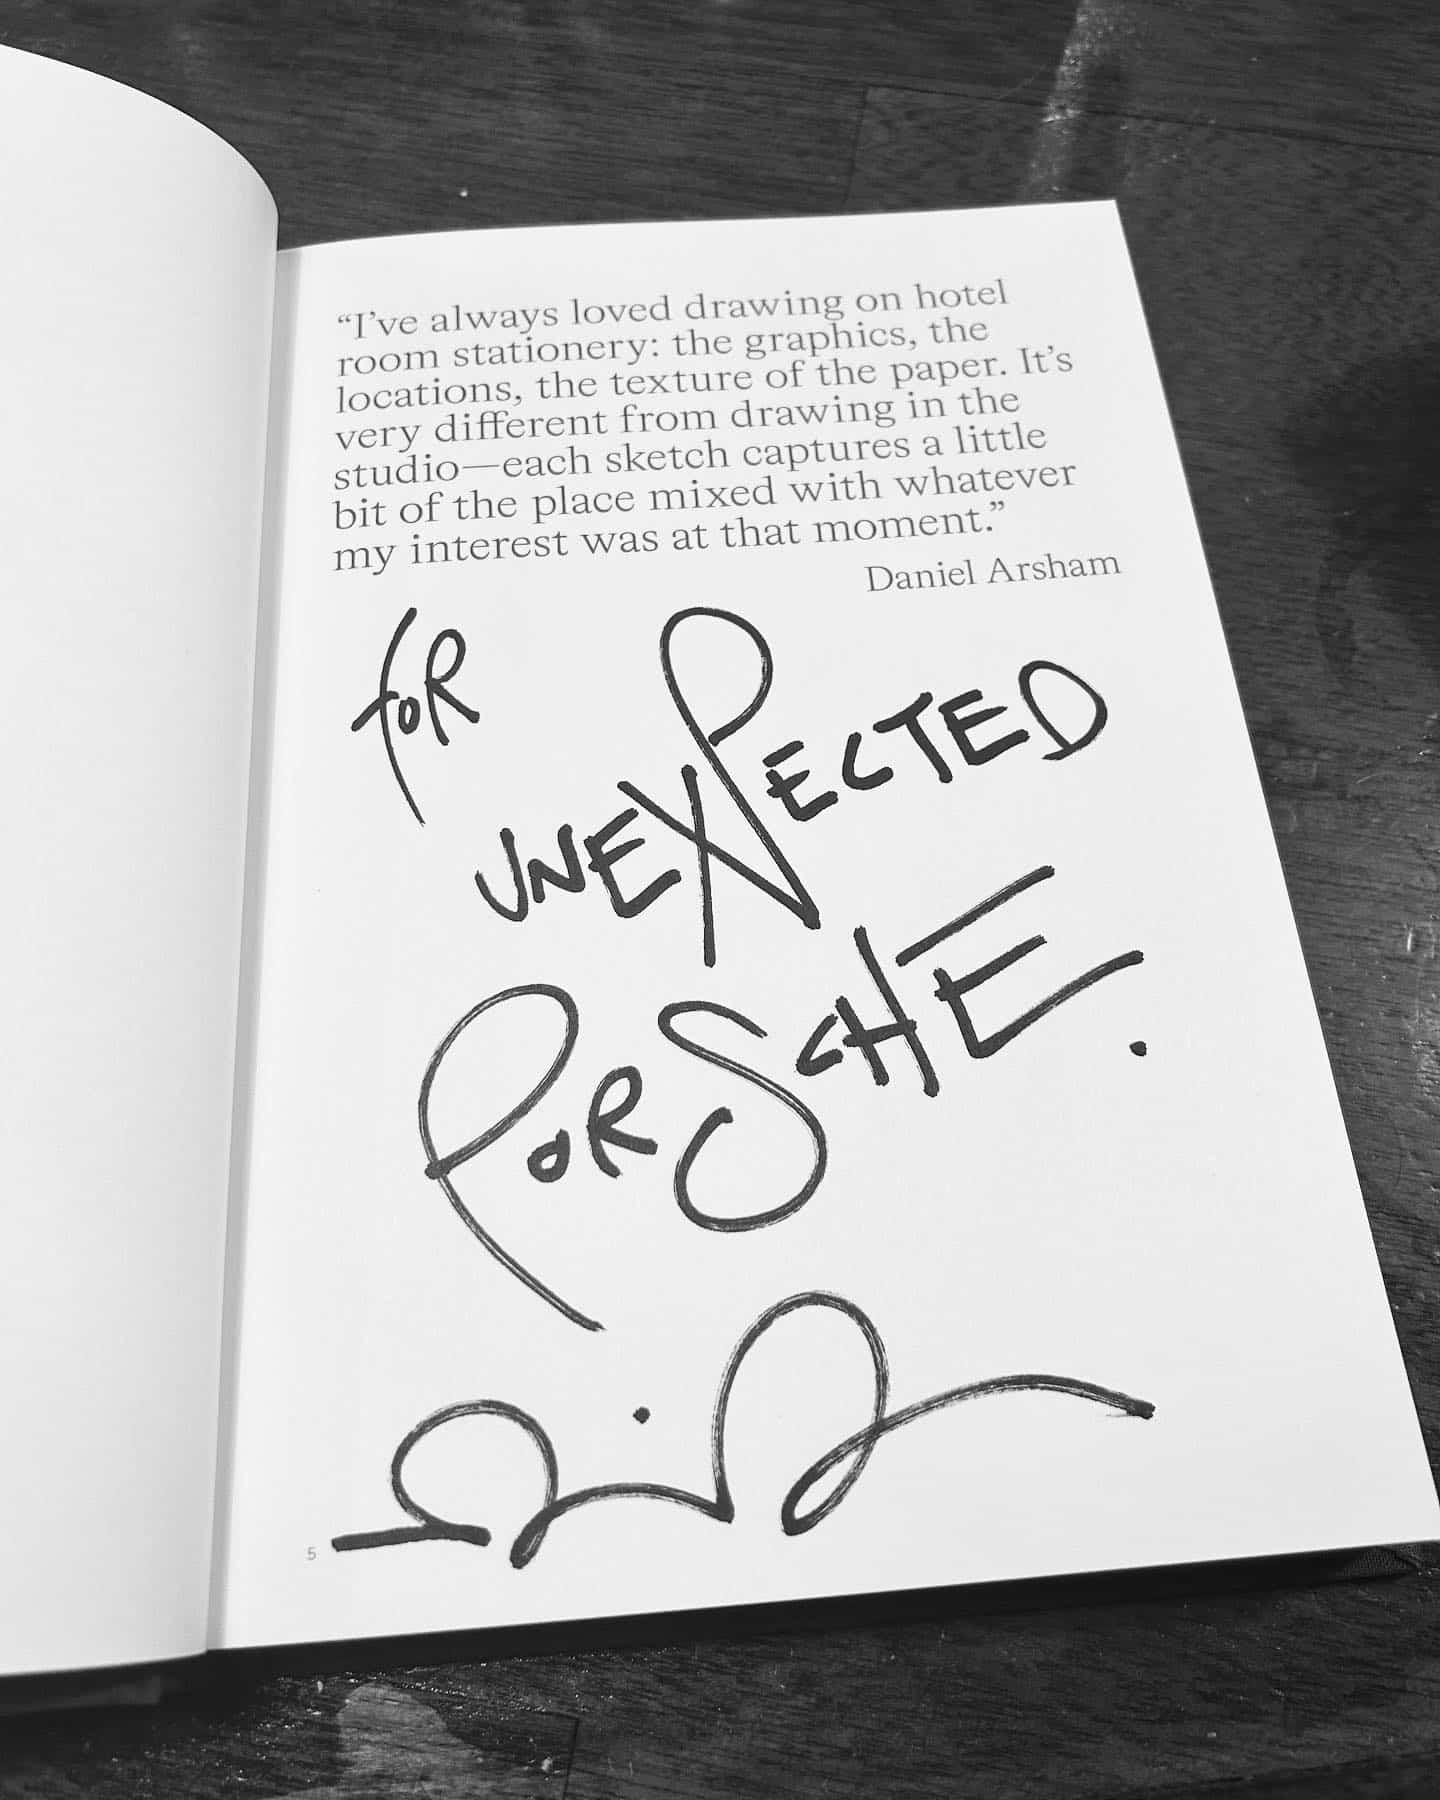 “I’ve always loved drawing on hotel
room stationery: the graphics, the
locations, the texture of the paper. It’s
very different from drawing in the
studio—each sketch captures a little
bit of the place mixed with whatever
my interest was at that moment.”
Daniel Arsham
foR
UNEXPECTED
PoRSCHE.
5